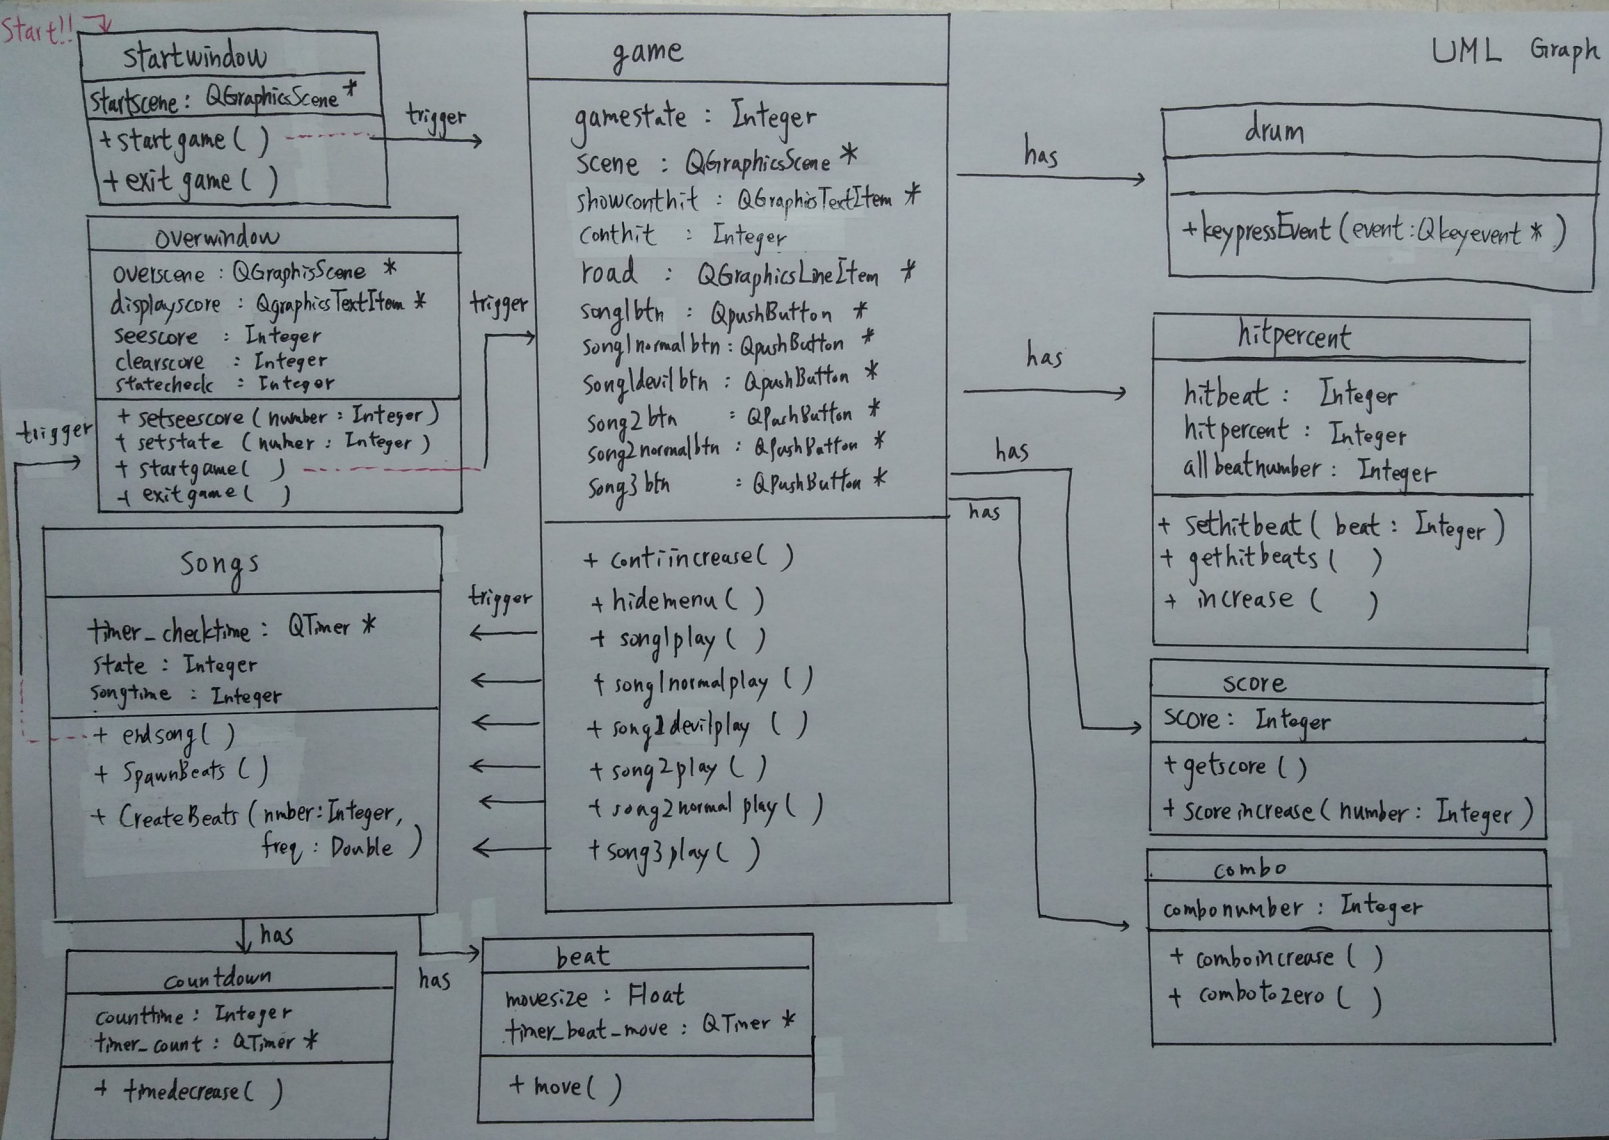 Start!!
UML Graph
startwindow
startscene: QGraphicsScene*
+ startgame( )
+ exit game ( )
trigger
overwindow
overscene : QGraphisScene *
displayscore : QgraphicsTextItem *
seescore : Integer
clearscore : Integer
statecheck : Integer
+ setseescore ( number : Integer)
+ setstate ( number : Integer )
+ startgame( )
+ exitgame ( )
trigger
trigger
songs
timer_checktime : QTimer *
state : Integer
songtime : Integer
+ endsong( )
+ SpawnBeats ( )
+ CreateBeats (nmber:Integer,
freq : Double )
has
has
countdown
counttime : Integer
timer_count : QTimer *
+ timedecrease( )
beat
movesize : Float
timer_beat_move : QTimer *
+ move( )
game
gamestate : Integer
scene : QGraphicsScene *
showconthit : QGraphicsTextItem *
conthit : Integer
road : QGraphicsLineItem *
song1btn : QpushButton *
song1normalbtn : QpushButton *
song1devilbtn : QpushButton *
song2btn : QPushButton *
song2normalbtn : QPushButton *
song3btn : QPushButton *
+ contiincrease( )
+ hidemenu ( )
+ song1play ( )
+ song1normalplay ( )
+ song1devilplay ( )
+ song2play ( )
+ song2normal play ( )
+ song3play ( )
trigger
has
has
has
has
drum
+keypressEvent (event:Qkeyevent * )
hitpercent
hitbeat : Integer
hitpercent : Integer
allbeatnumber : Integer
+ sethitbeat ( beat : Integer )
+ gethitbeats ( )
+ increase ( )
score
score : Integer
+ getscore ( )
+ scoreincrease ( number : Integer )
combo
combonumber : Integer
+ comboincrease ( )
+ combotozero ( )